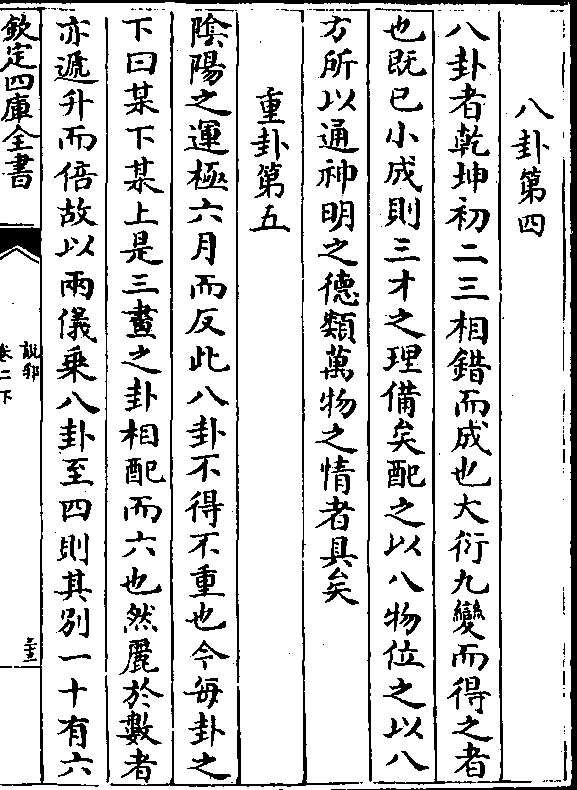 八卦第四
八卦者乾坤初二三相錯而成也大衍九變而得之者
也既已小成則三才之理備矣配之以八物位之以八
方所以通神明之德類萬物之情者具矣
重卦第五
陰陽之運極六月而反此八卦不得不重也今每卦之
下曰某下某上是三畫之卦相配而六也然麗於數者
亦遞升而倍故以兩儀乘八卦至四則其别一十有六
欽定四庫全書
說郛
卷二下